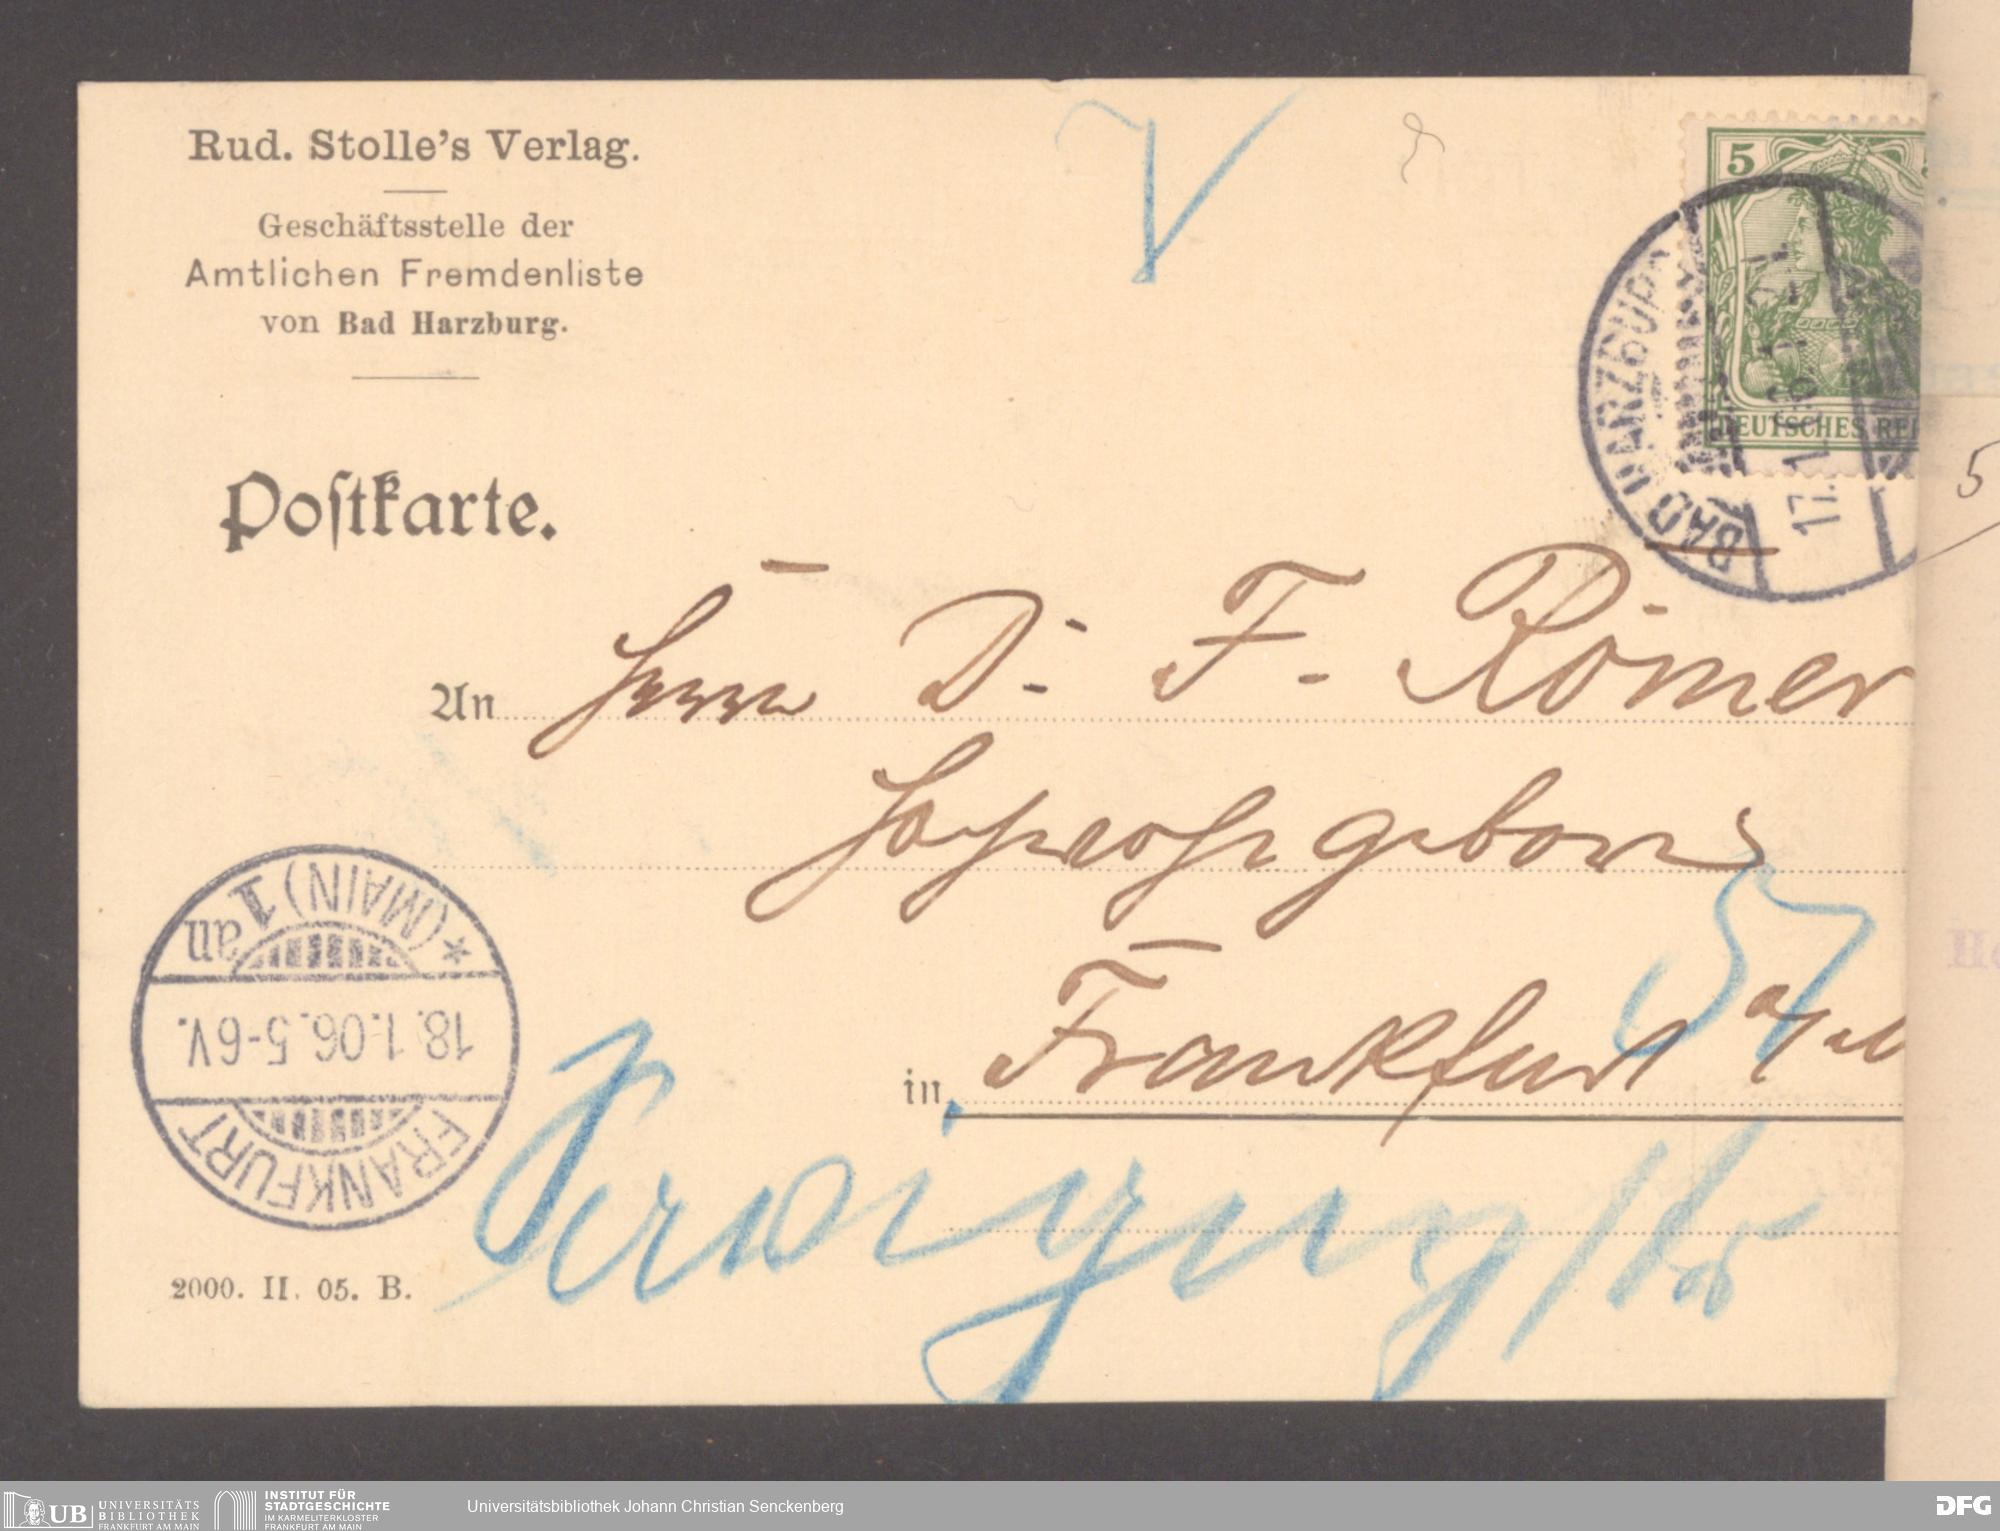 Rud. Stolle's Verlag.
Geschäftsstelle der
Amtlichen Fremdenliste
von Bad Harzburg.
Postkarte.
5
DEUTSCHES REI
BAD HARZBURG
17.1.06.
An Herrn Dr. F. Römer
Hochwohlgeboren
in Frankfurt a/M
57
5
(MAIN) 1 an
18.1.06.5-6V.
FRANKFURT
2000. II. 05. B.
UB UNIVERSITÄTS
BIBLIOTHEK
FRANKFURT AM MAIN
INSTITUT FÜR
STADTGESCHICHTE
IM KARMELITERKLOSTER
FRANKFURT AM MAIN
Universitätsbibliothek Johann Christian Senckenberg
DFG